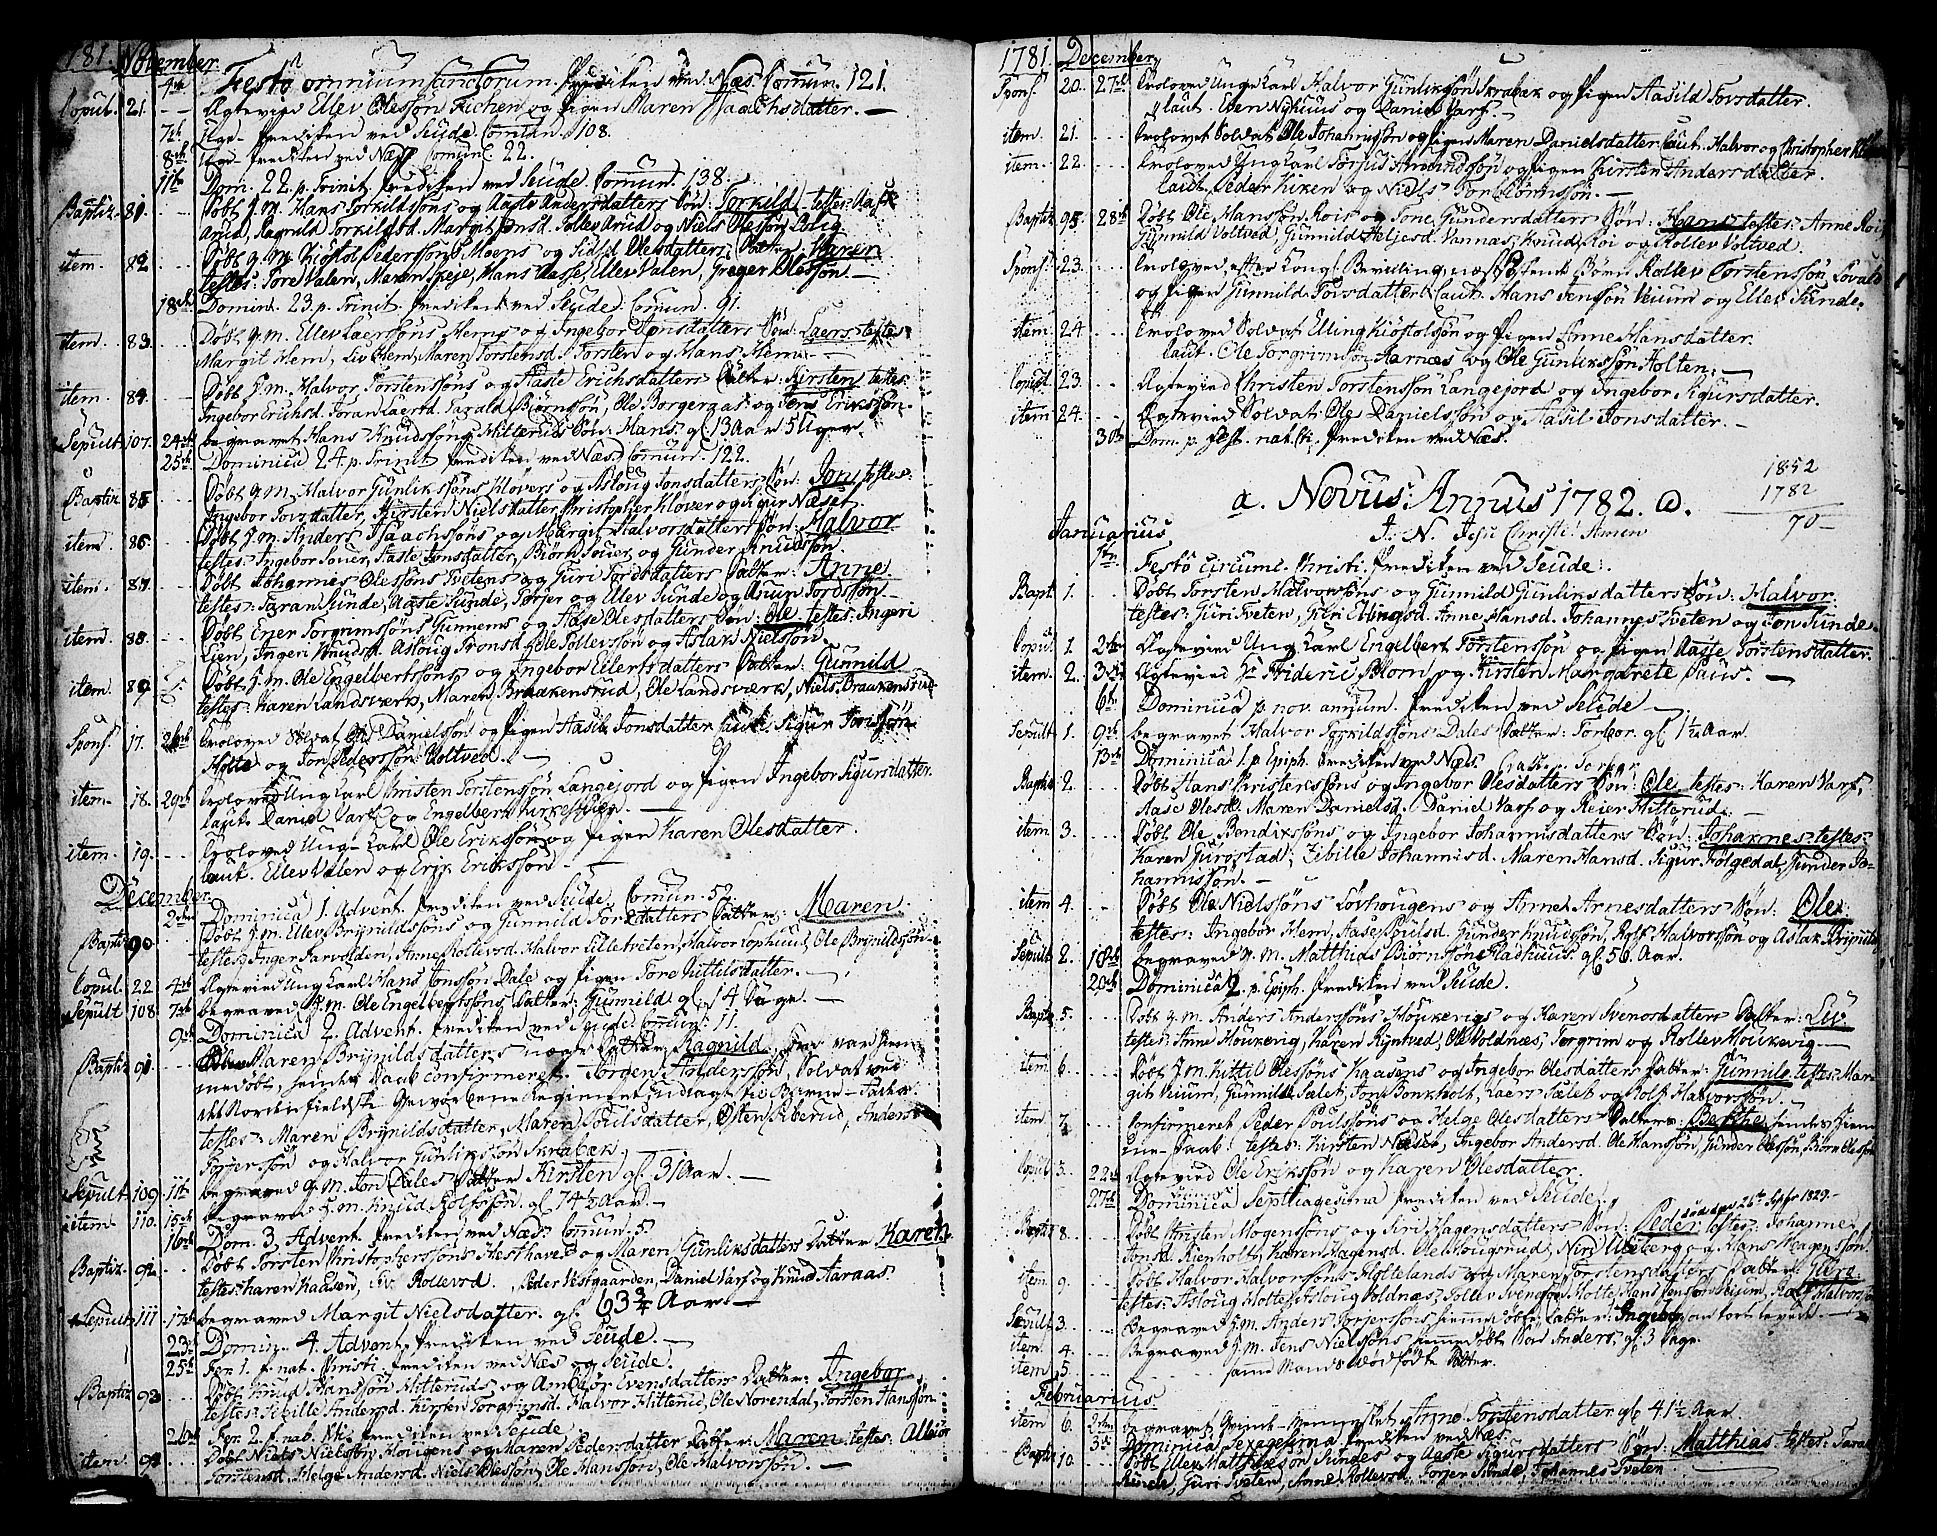 1781. November.
4de Festo omnium Sanctorum. Prediken ved Næs. Comun. 121.
Copul. 21. Ægtevied Ellev Olessøn Kichen og Pigen Maren Isaachsdatter.
7de Uge-Prediken ved Seude. Comun. 108.
8de Uge-Prediken ved Næs. Comun. 22.
11te Dom. 22. p. Trinit. Prediken ved Seude. Comun. 138.
Baptiz. 81. Døbt g.m. Hans Torkildsøns og Aaste Andersdatters Søn: Torkild. testes: Aase
Torkilsd. Margit og Niels Olessøn Bolig
item. 82. Døbt g.m. Kiøstol Pedersøns Moens og Sidsel Olesdatters Datter: Karen
testes: Tore Valen, Maren Hans Aasse, Ellev Valen, Greger Olessøn.
18de Domin. 23. p. Trinit. Prediken ved Seude. Comun. 91.
item. 83. Døbt g.m. Ellev Laerssøns Hems og Ingebor Jonsdatters Søn: Laers testes:
Margit Hem, Liv Hem, Maren Torstensd. Torsten og Hans Hem.
item. 84. Døbt g.m. Halvor Torstenssøns og Aaste Erichsdatters Datter: Kirsten testes:
Ingebor Erichsd. Joran Laersd. Tarald Biørnssøn, Ole Borgeraas og Jens Erikssøn.
Sepult. 107. 24de begravet Hans Knudssøns Hitteruds Søn: Hans gl. 13 Aar 5 Uger.
25de Dominica 24. p. Trinit. Prediken ved Næs. Comun. 122.
Baptiz. 85. Døbt g.m. Halvor Gunlikssøns Kløvers og Asloug Jonsdatters Søn: Jon testes:
Ingebor Tovsdatter, Kirsten Nielsdatter, Christopher Kløver og Sigur Næset.
item. 86. Døbt g.m. Anders Isaachssøns og Margit Halvorsdatters Søn: Halvor
testes: Ingebor Sauer, Aaste Jonsdatter, Biørn Sauer, og Gunder Knudssøn.
item. 87. Døbt Johannes Olessøns Tvetens og Guri Torersdatters Datter: Anne
testes: Taran Sunde, Aaste Sunde, Torjer og Ellev Sunde og Aslak Tordssøn
item. 88. Døbt Erjer Torgrimssøns Gunnems og Aase Olesdatters Søn: Ole testes: Ingeri
Lien, Ingeri Knudsd. Asloug Tronsd. Ole Tollevssøn og Aslak Nielssøn.
item. 89. Døbt g.m. Ole Engelbertssøns og Ingebor Ellertsdatters Datter: Gunnild
testes: Karen Landsværk, Maren Braakensrud, Ole Landsværk, Niels Braakensrud
Spons. 17. Trolovet Soldat Ole Danielssøn og Pigen Aasil Jonsdatter. Caut. Sigur Tovssøn
Holte og Jon Pederssøn Voltved.
item. 18. 29de Trolovet Ung Karl Christen Torstenssøn Langejord og Pigen Ingebor Sigursdatter.
Caut. Daniel Varf og Engelbert Kirkestuen.
item. 19. Trolovet Ung-Karl Ole Erikssøn og Pigen Karen Olesdatter.
Caut. Ellev Valen og Erje Erikssøn.
December.
2den Dominica 1. Advent. Prediken ved Seude. Comun. 52.
Baptiz. 90. Døbt g.m. Ellev Brynildsøns og Gunnild Toresdatters Datter: Maren
testes: Inger Farvolden, Anne Rollevsd. Halvor Lilletveten, Halvor Ole Brynildssøn
Copul. 22. 4de Ægteviet Ung Karl Hans Jonssøn Dale og Pigen Tore Kittilsdatter.
Sepult 108. 7de begraved g.m. Ole Engelbertssøns Datter: Gunnild gl. 14 Dage.
9de Dominica 2. Advent. Prediken ved Seude. Comun. 11.
Baptiz. 91. Maren Brynildsdatters uægte Datter: Ragnild, som var hjem-
medøbt, hendes Daab confirmeret. Jørgen Halderssøn, Soldat ved
det Nordenfieldske Gevorbene Regiment Udlagt til Barne-Fader
testes: Maren Brynildsdatter, Maren Poulsdatter, Østen Riberud, Anders
Torjerssøn og Halvor Gunlikssøn Skrabæk.
Sepult. 109. 11te begraved g.m. Jon Dales Datter Kirsten gl. 31 Aar.
item. 110. 15de begraved g.m. Knud Rolfssøn gl. 74½ Aar.
16de Dom. 3. Advent. Prediken ved Næs. Comun. 5.
Baptiz. 92. Døbt Torsten Christopherssøns Hesthaves og Maren Gunliksdatters Datter Karen
testes: Karen Kaasen, Liv Rollevsd. Peder Vestgaarden, Daniel Varf og Knud Aaraas.
Sepult. 111. 17de begraved Margit Nielsdatter. gl. 63¾ Aar.
23de Domin. 4. Advent. Prediken ved Seude.
25de Fer. 1. f. nat. Christi. Prediken ved Næs og Seude.
Baptiz. 93. Døbt Knud Hanssøn Hitteruds og Ambiør Evensdatters Datter: Ingebor
testes: Sibille Andersd. Kirsten Torgrimsd. Halvor Hitterud, Ole Norendal, Torsten Hanssøn.
26de Fer. 2. f. nat. Chr. Prediken ved Seude
item 94. Døbt Niels Nielssøn Hougens og Maren Pedersdatter Datter: Maren testes: Albiør
Torstensd. Helge Andersd. Niels Olessøn, Ole Hanssøn, Ole Halvorssøn.
1781. December.
Spons. 20. 27de Trolovet Unge Karl Halvor Gunlikssøn Skrabæk og Pigen Aasild Tovsdatter.
Caut. Even Nyhuus og Daniel Varf.
item. 21. Trolovet Soldat Ole Johannissøn og Pigen Maren Danielsdatter Caut. Halvor og Christopher
item. 22. Trolovet Ung Karl Torjus Amundssøn og Pigen Kirsten Andersdatter.
Caut. Peder Kiken og Niels Torbiørnssøn.
Baptiz. 95. 28de Døbt Ole Hanssøn Rois og Tone Gundersdatters Søn: Hans testes: Anne Roi
Gunnild Voltved, Gunnild Heljesd. Vannas, Knud Roi og Rollev Voltved.
Spons. 23. Trolovet, efter Kongl. Bevilling, næstsøskende Børn Rollev Torstenssøn Lovald
og Pigen Gunnild Tovsdatter. Caut. Hans Jenssøn Veium og Ellev Sunde.
item 24. Trolovet Soldat Elling Kiøstolssøn og Pigen Anne Hansdatter.
Caut. Ole Torgrimssøn Aarnæs og Ole Gunlikssøn Holten.
Copul. 23. Ægteviet Christen Torstenssøn Langejord og Ingebor Sigursdatter.
item 24. Ægteviet Soldat Ole Danielssøn og Aasil Jonsdatter.
30te Dom. p. Fest. nat. Chr. Prediken ved Næs.
1852
1782
70
a. Novus: Annus 1782. ω.
Januarius
I. N. Jesu Christi! Amen
1ste Festo Circumc. Christi. Prediken ved Seude.
Bapt 1. Døbt Torsten Halvorssøns og Gunnild Gunliksdatters Søn: Halvor.
testes: Guri Tveten, Siri Ellingsd. Anne Hansd. Johannes Tveten og Jon Sunde.
Copul. 1. 2den Ægteviet Ung Karl Engelbert Torstenssøn og Pigen Aasse Torstensdatter.
item 2. 3die Ægteviet Hr Frideric Blom, og Kirsten Margarete Paus.
6te Dominica p. nov. annum. Prediken ved Seude
Sepult 1. 9de begravet Halvor Torkildssøns Dales Datter: Torbor. gl. 1½ Aar.
13de Dominica 1. p. Epiph. Prediken ved Næs.
Baptiz 2. Døbt Hans Christenssøns og Ingebor Olesdatters Søn: Ole testes: Karen Varf,
Aase Olesd. Maren Danielsd. Daniel Varf og Reier Hitterud.
item 3. Døbt Ole Bendixssøns og Ingebor Johannisdatters Søn: Johannes testes:
Karen Gurostad, Zibille Johannisd. Maren Hansd. Sigur Følgedal, Gunder Jo-
hannissøn.
item 4. Døbt Ole Nielssøns Løvhougens og Anne Arnesdatters Søn: Ole
testes: Ingebor Hem, Aase Poulsd. Gunder Knudssøn, Rolf Halvorssøn og Aslak Brynilds
Sepult 2. 18de begraved g.m. Matthias Biørnssøn Fladhuus. gl. 56 Aar.
20de Dominica 2. p. Epiph. Prediken ved Seude.
Baptz 5. Døbt g.m. Anders Anderssøns Houkevigs og Karen Svenosdatters Datter: Liv.
testes: Anne Houkevig, Karen Ryntved, Ole Voldnæs, Torgrim og Rollev Houkevig.
item 6. Døbt g.m. Kittil Olessøns Kaasens og Ingebor Olesdatters Datter: Gunnild testes: Mar-
git Veium, Gunnild Sælet, Tone Bonkholt, Laers Sælet og Rolf Halvorssøn.
item 7. Confirmeret Peder Poulssøns og Helge Olesdatters Datters: Berthe hendes Hiem-
me-Daab: testes: Kirsten Næset, Ingebor Andersd. Ole Hanssøn, Gunder Olessøn, Biørn Olessøn
Copul. 3. 22de Ægteviet Ole Erikssøn og Karen Olesdatter.
27de Dominica Septuagesima Prediken ved Seude.
død den 26de Septbr 1829.
Bapt 8. Døbt Christen Mogenssøns og Siri Hagensdatters Søn: Peder testes: Johanne
Jonsd. Rienholt, Karen Hagensd. Ole Hougsrud, Niri Ubeberg og Hans Mogenssøn.
item 9. Døbt Halvor Halvorssøns Holtelands og Maren Torstensdatters Datter: Guro.
testes: Asloug Holte, Asloug Voldnæs, Tollev Svenssøn Holte, Hans Jenssøn Veium, Rolf Halvorssøn
Sepult 3. Begraved g.m. Anders Torjerssøns hiemmedøbte Datter: Ingebor, som kort levede.
item. 4. Begraved g.m. Jens Nielssøns hiemmedøbt Søn Anders gl. 3 Dage.
item 5. samme Mands dødfødte Datter.
Februarius.
item 6. 2den begravet Qvinde-Mennisket Anne Torstensdatter gl. 41½ Aar.
3die Dominica Sexagesima Prediken ved Næs.
Baptz 10. Døbt Ellev Matthissøn Sundes og Aaste Sigursdatters Søn: Matthias testes: Taran
Sunde, Guri Tveten, Anne Rollevsd. Torjer Sunde, Johannes Tveten